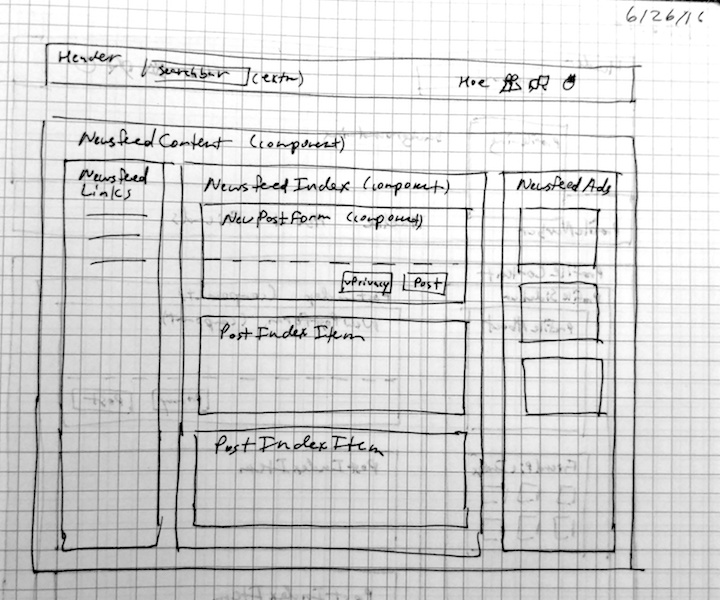 6/26/16
Header
searchbar (extra)
NewsfeedContent (component)
Newsfeed
Links
NewsfeedIndex (component)
NewPostForm (component)
vPrivacy Post
PostIndexItem
PostIndexItem
Newsfeed Ads